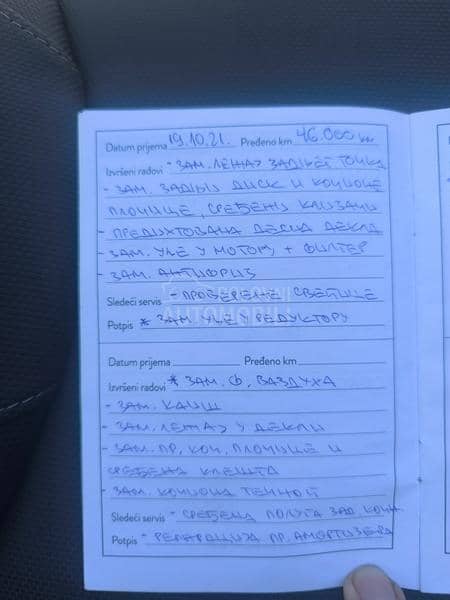 Datum prijema 19.10.21. Pređeno km 46.000 km
Izvršeni radovi - ЗАМ. ЛЕЖАЈ ЗАДЊЕГ ТОЧКА
- ЗАМ. ЗАДЊИ ДИСК И КОЧИОНЕ
ПЛОЧИЦЕ, СРЕЂЕНИ КЛИЗАЧИ
- ПРЕДИХТОВАНА ДЕСНА ДЕКЛА
- ЗАМ. УЉЕ У МОТОРУ + ФИЛТЕР
- ЗАМ. АНТИФРИЗ
Sledeći servis - ПРОВЕРЕНЕ СВЕЋИЦЕ
Potpis * ЗАМ. УЉЕ У РЕДУКТОРУ
POLOVNI
AUTOMOBILI
Datum prijema Pređeno km
Izvršeni radovi * ЗАМ. Ф. ВАЗДУХА
- ЗАМ. КАИШ
- ЗАМ. ЛЕЖАЈ У ДЕКЛИ
- ЗАМ. ПР. КОЧ. ПЛОЧИЦЕ И
СРЕЂЕНА КЛЕШТА
- ЗАМ. КОЧИОНА ТЕЧНОСТ
Sledeći servis - СРЕЂЕНА ПОЛУГА ЗАД. КОЧН
Potpis - РЕПЕРАЦИЈА ПР. АМОРТИЗЕРА